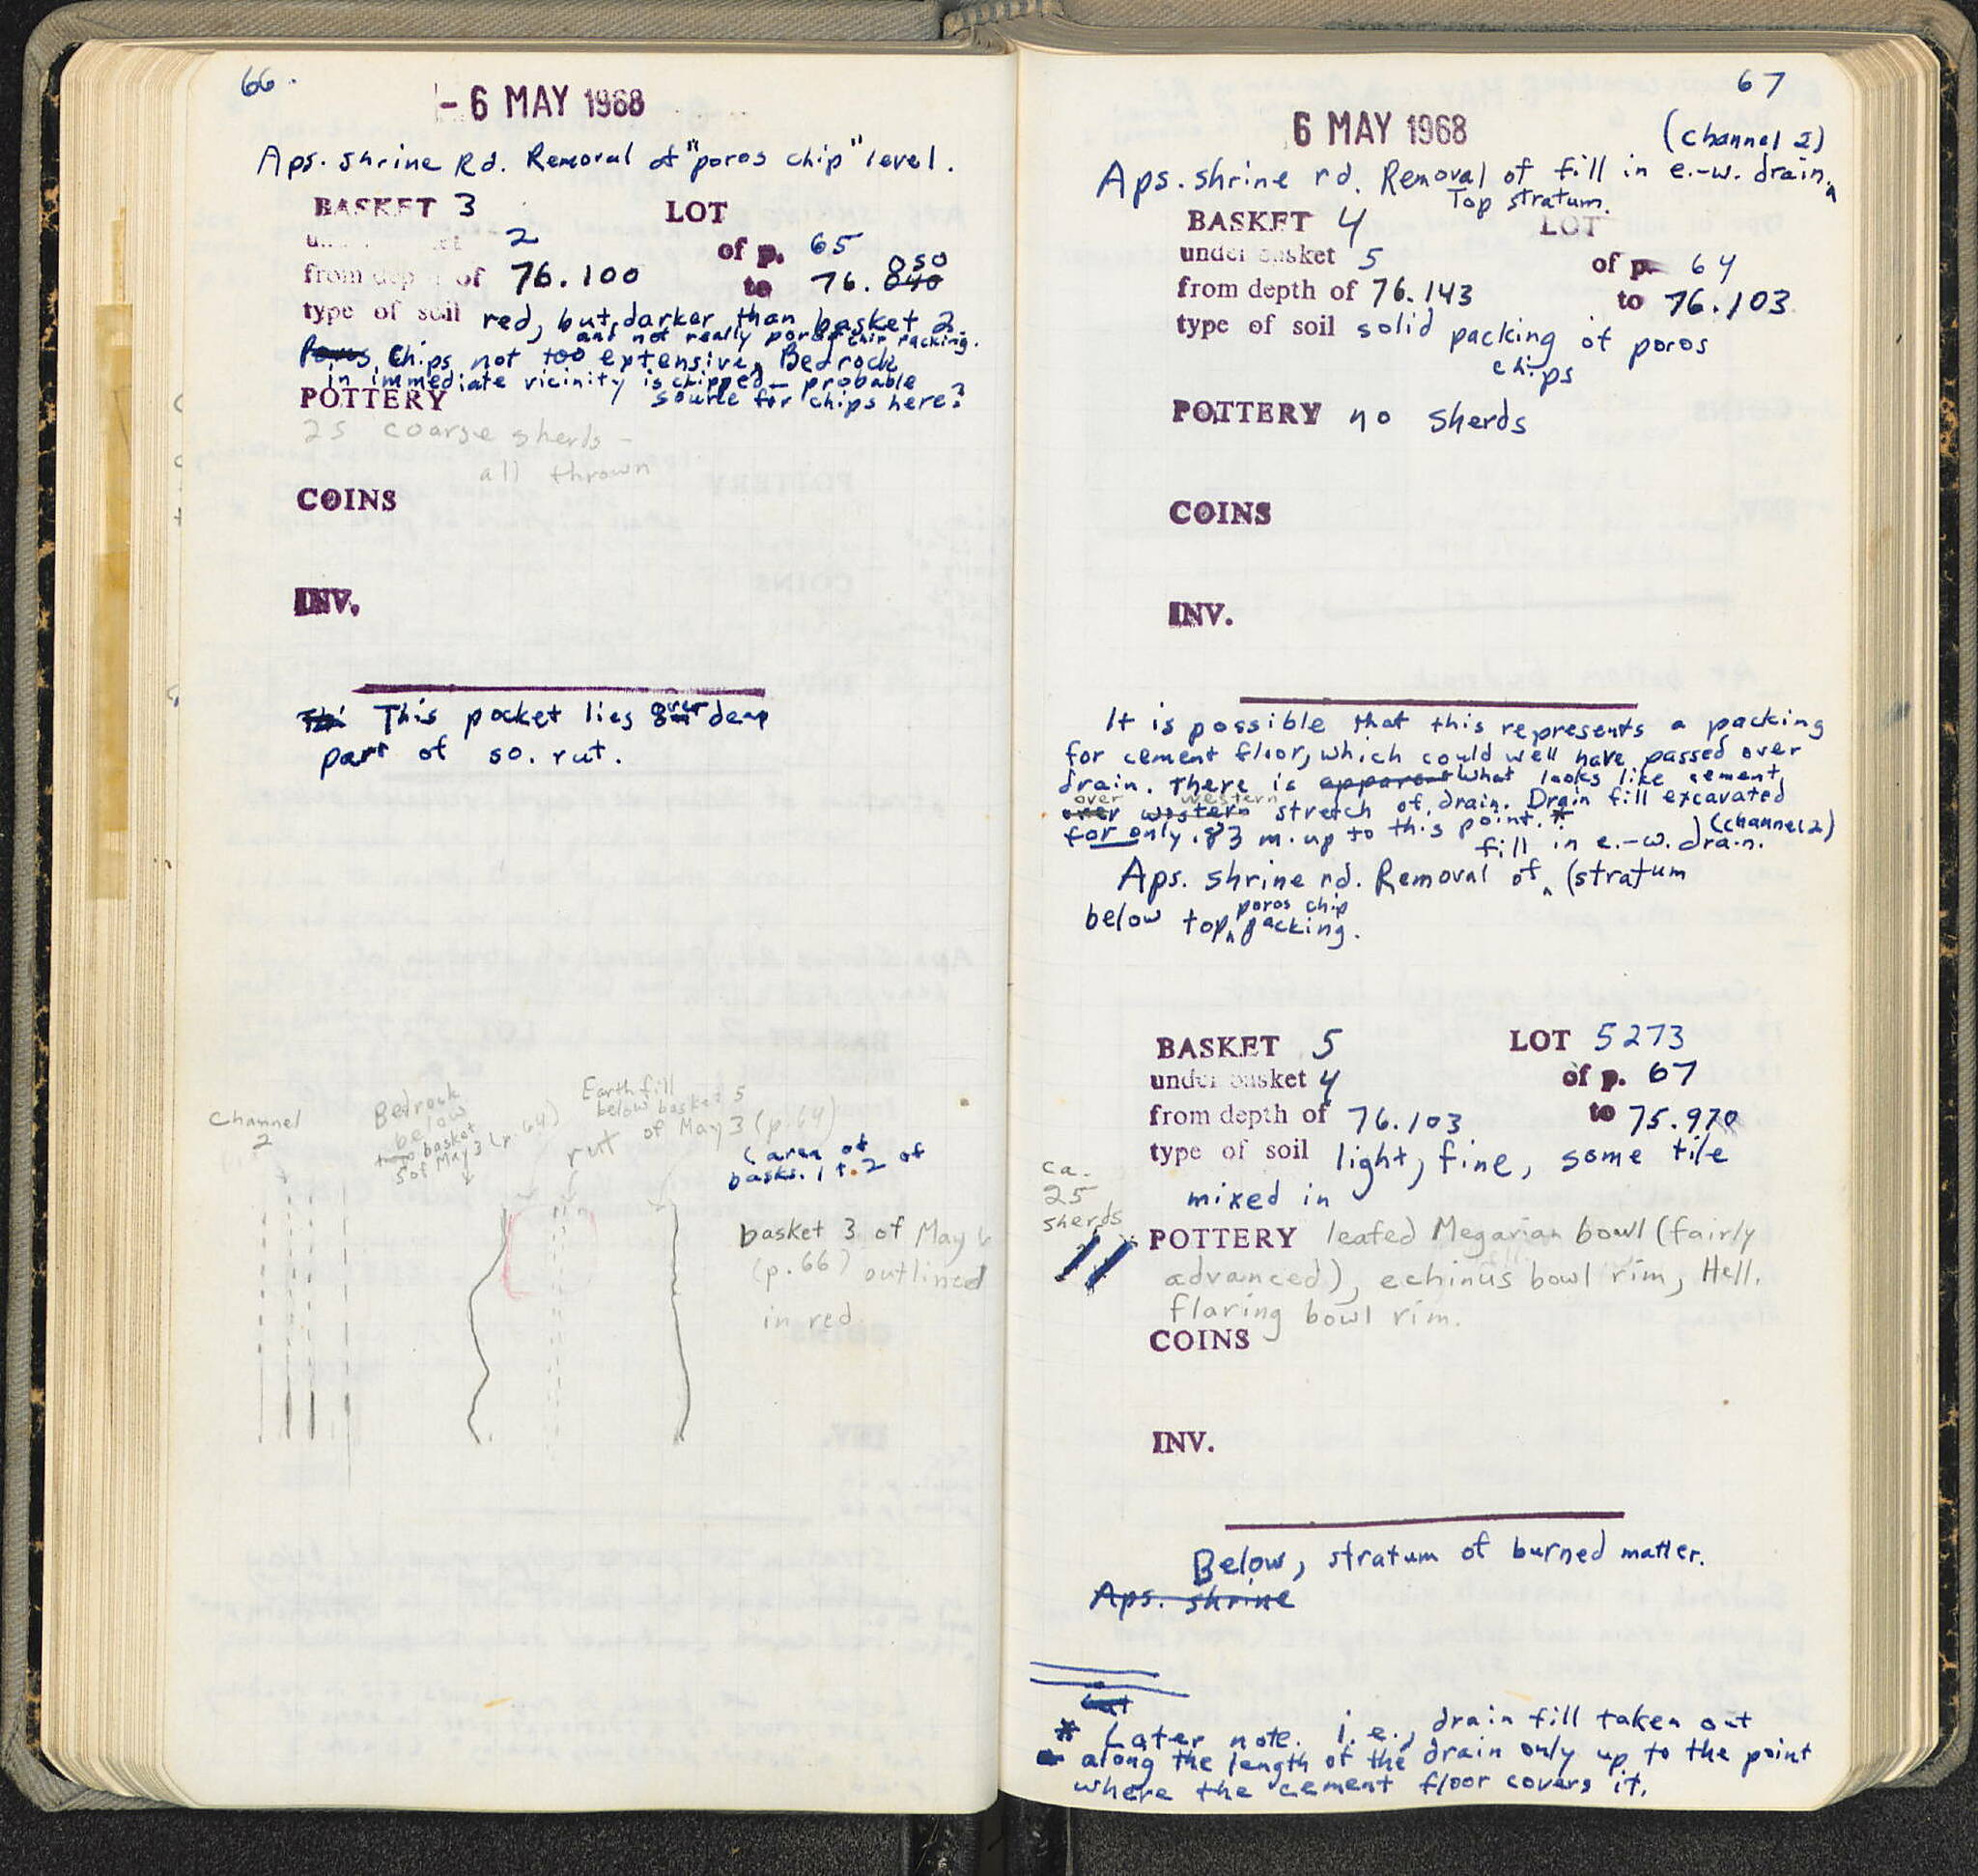 66.
- 6 MAY 1968
Aps. shrine Rd. Removal of "poros chip" level.
BASKET 3 LOT
2 of p. 65
from dep of 76.100 to 76. 040 050
type of soil red, but darker than basket 2
and not really poros chip packing.
Poros Chips not too extensive, Bedrock
in immediate vicinity is chipped - probable
source for chips here?
POTTERY
25 coarse sherds -
all thrown
COINS
INV.
This pocket lies over deep
part of so. rut.
Channel
2
Bedrock
below
basket
5 of May 3 (p. 64)
Earth fill
below basket 5
of May 3 (p. 64)
rut
(area of
basks. 1 + 2 of
basket 3 of May 6
(p. 66) outlined
in red
67
6 MAY 1968
(channel 2)
Aps. shrine rd. Removal of fill in e.-w. drain
Top stratum.
BASKET 4 LOT
under basket 5 of p. 64
from depth of 76.143 to 76.103
type of soil solid packing of poros
chips
POTTERY no sherds
COINS
INV.
It is possible that this represents a packing
for cement floor, which could well have passed over
drain. There is apparent what looks like cement
over western
over western stretch of drain. Drain fill excavated
for only .83 m. up to this point. *
(channel 2)
fill in e.-w. drain.
Aps. shrine rd. Removal of (stratum
poros chip
below top packing.
BASKET 5 LOT 5273
under basket 4 of p. 67
from depth of 76.103 to 75.970
type of soil light, fine, some tile
mixed in
ca.
25
sherds
POTTERY leafed Megarian bowl (fairly
advanced), echinus bowl rim, Hell.
flaring bowl rim.
COINS
INV.
Below, stratum of burned matter.
Aps. shrine
* Later note. i.e., drain fill taken out
along the length of the drain only up to the point
where the cement floor covers it.